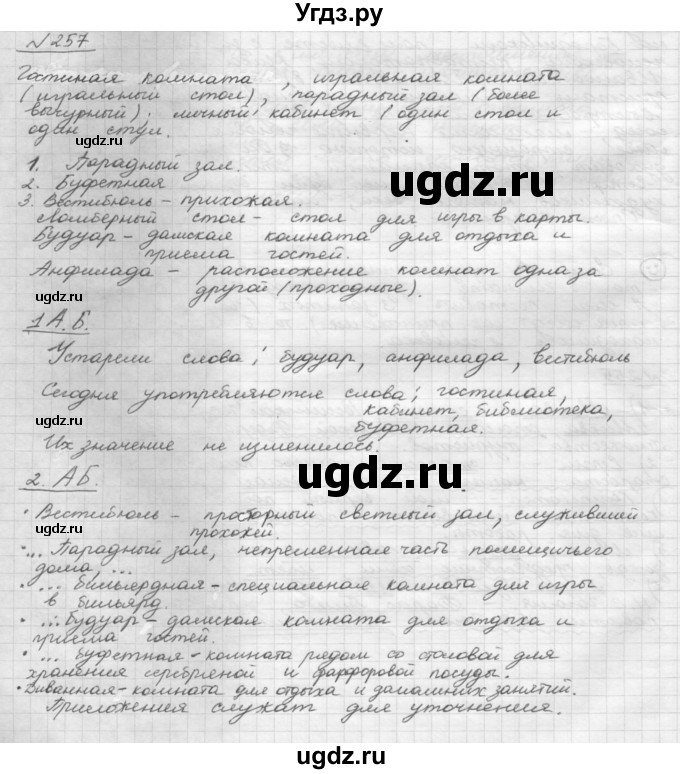 Угдз.ру
№257
Гостиная комната, игральная комната
(игральный стол), парадный зал (более
вычурный); личный кабинет (один стол и
один стул.
1. Парадный зал.
2. Буфетная
3. Вестибюль - прихожая.
Ломберный стол - стол для игры в карты.
Будуар - дамская комната для отдыха и
приема гостей.
Анфилада - расположение комнат одна за
другой (проходные).
1 А.Б.
Устарели слова: будуар, анфилада, вестибюль
Сегодня употребляются слова: гостиная,
кабинет, библиотека,
буфетная.
Их значение не изменилось.
2. АБ.
• Вестибюль - просторный светлый зал, служивший
прохожей.
• ... Парадный зал, непременная часть помещичьего
дома, ...
• ... бильярдная - специальная комната для игры
в бильярд.
• ... Будуар - дамская комната для отдыха и
приема гостей.
• ... буфетная - комната рядом со столовой для
хранения серебряной и фарфоровой посуды.
• Диванная - комната для отдыха и домашних занятий.
Приложения служат для уточнения.
ugdz.ru
ugdz.ru
ugdz.ru
ugdz.ru
ugdz.ru
ugdz.ru
ugdz.ru
ugdz.ru